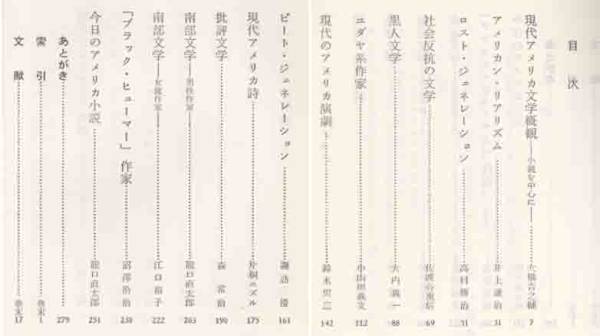 目次
現代アメリカ文学概観——小説を中心に—— 大橋吉之輔 7
アメリカン・リアリズム 井上謙治 31
ロスト・ジェネレーション 高村勝治 51
社会反抗の文学 69
黒人文学 大内義一 88
ユダヤ系作家 112
現代のアメリカ演劇 鈴木周二 142
ビート・ジェネレーション 諏訪優 161
現代アメリカ詩 片桐ユズル 175
批評文学 森常治 190
南部文学——男性作家—— 龍口直太郎 203
南部文学——女流作家—— 江口裕子 222
「ブラック・ヒューマー」作家 沼澤洽治 238
今日のアメリカ小説 龍口直太郎 251
あとがき 279
索引 巻末 1
文献 巻末 17